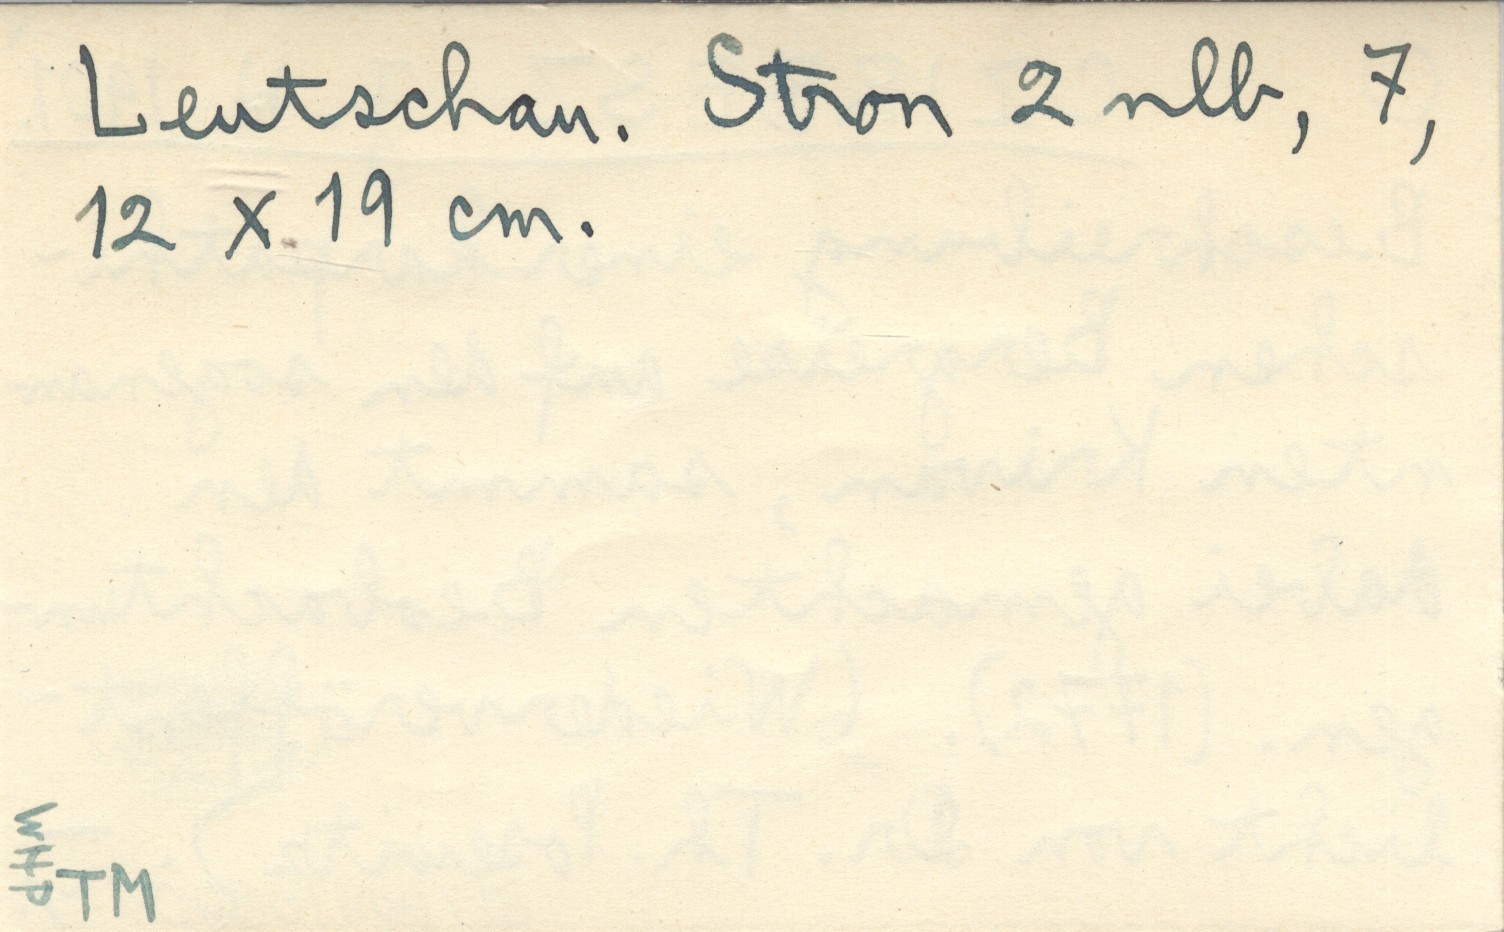 Leutschau. Stron 2 nlb, 7,
12 x 19 cm.
WHP
TM